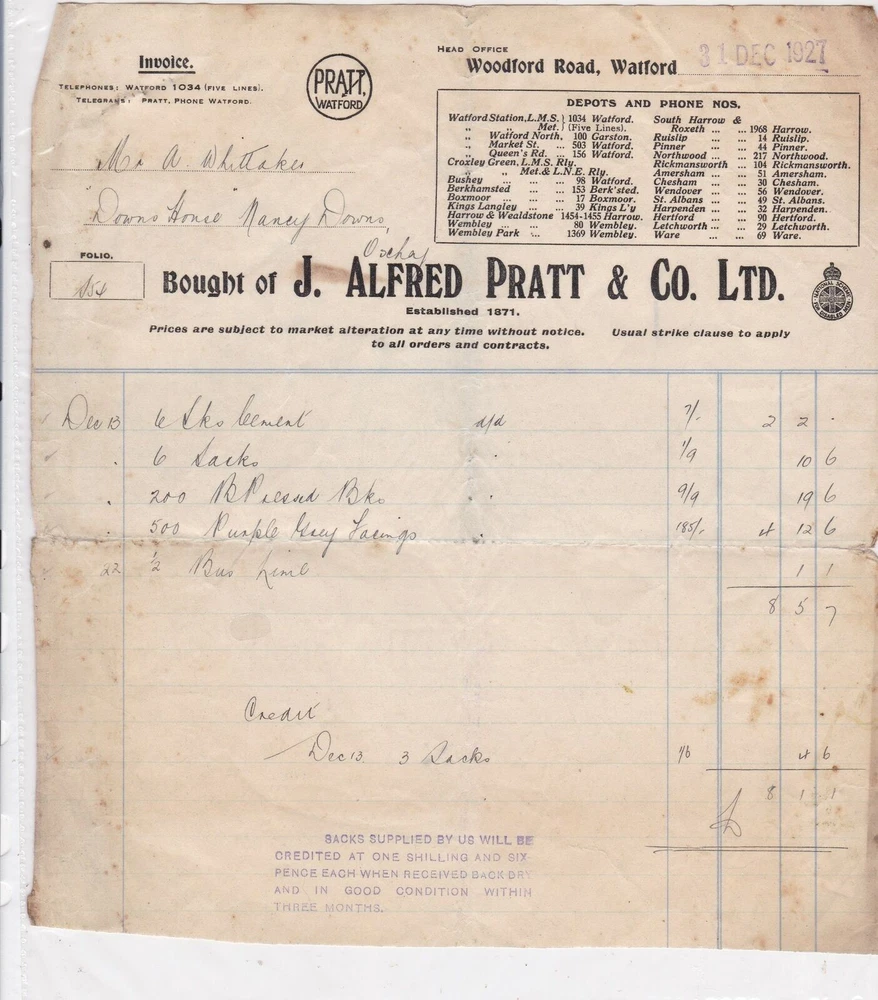 Invoice.
TELEPHONES: WATFORD 1034 (FIVE LINES).
TELEGRAMS: PRATT, PHONE WATFORD.
PRATT, WATFORD
HEAD OFFICE
Woodford Road, Watford 31 DEC 1927
DEPOTS AND PHONE NOS.
Watford Station, L.M.S. } 1034 Watford.
„ „ Met. } (Five Lines).
„ Watford North. 100 Garston.
„ Market St. ... 503 Watford.
„ Queen's Rd. ... 156 Watford.
Croxley Green, L.M.S. Rly.
„ „ Met. & L.N.E. Rly.
Bushey ... ... ... 98 Watford.
Berkhamsted ... ... 153 Berk'sted.
Boxmoor ... ... ... 17 Boxmoor.
Kings Langley ... ... 39 Kings L'y
Harrow & Wealdstone 1454-1455 Harrow.
Wembley ... ... ... 80 Wembley.
Wembley Park ... 1369 Wembley.
South Harrow &
Roxeth ... ... 1968 Harrow.
Ruislip ... ... 14 Ruislip.
Pinner ... ... 44 Pinner.
Northwood ... ... 217 Northwood.
Rickmansworth ... 104 Rickmansworth.
Amersham ... ... 51 Amersham.
Chesham ... ... 30 Chesham.
Wendover ... ... 56 Wendover.
St. Albans ... ... 49 St. Albans.
Harpenden ... ... 32 Harpenden.
Hertford ... ... 90 Hertford.
Letchworth ... ... 29 Letchworth.
Ware ... ... 69 Ware.
Mr A. Whittaker
"Downs House" Nancy Downs,
Oxhey
FOLIO.
Bought of J. ALFRED PRATT & CO. LTD.
NATIONAL SCHEME FOR DISABLED MEN
Established 1871.
Prices are subject to market alteration at any time without notice. Usual strike clause to apply
to all orders and contracts.
Dec 13 6 Sks Cement d/d 7/- 2 2 .
. 6 Sacks . 1/9 10 6
. 200 B Pressed Bks . 9/9 19 6
. 500 Purple Grey Facings . 185/- 4 12 6
22 ½ Bus Lime 1 1
8 5 7
Credit
Dec 13 3 Sacks 1/6 4 6
£ 8 1 1
SACKS SUPPLIED BY US WILL BE
CREDITED AT ONE SHILLING AND SIX-
PENCE EACH WHEN RECEIVED BACK DRY
AND IN GOOD CONDITION WITHIN
THREE MONTHS.